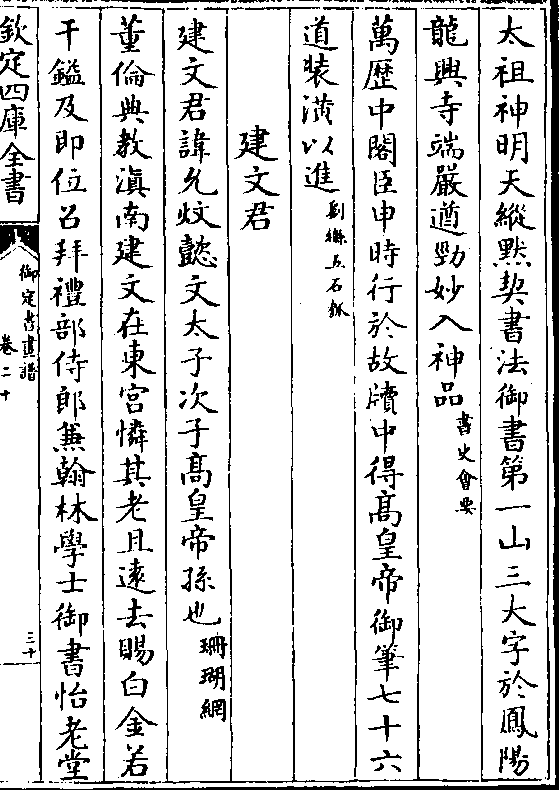 太祖神明天縱黙契書法御書第一山三大字於鳳陽
龍興寺端嚴遒勁妙入神品書史會要
萬歴中閣臣申時行於故牘中得髙皇帝御筆七十六
道装潢以進劉聯五石瓠
建文君
建文君諱允炆懿文太子次子髙皇帝孫也珊瑚網
董倫典教滇南建文在東宫憐其老且逺去賜白金若
干鎰及即位召拜禮部侍郎兼翰林學士御書怡老堂
欽定四庫全書
御定書畫譜
卷二十
三十